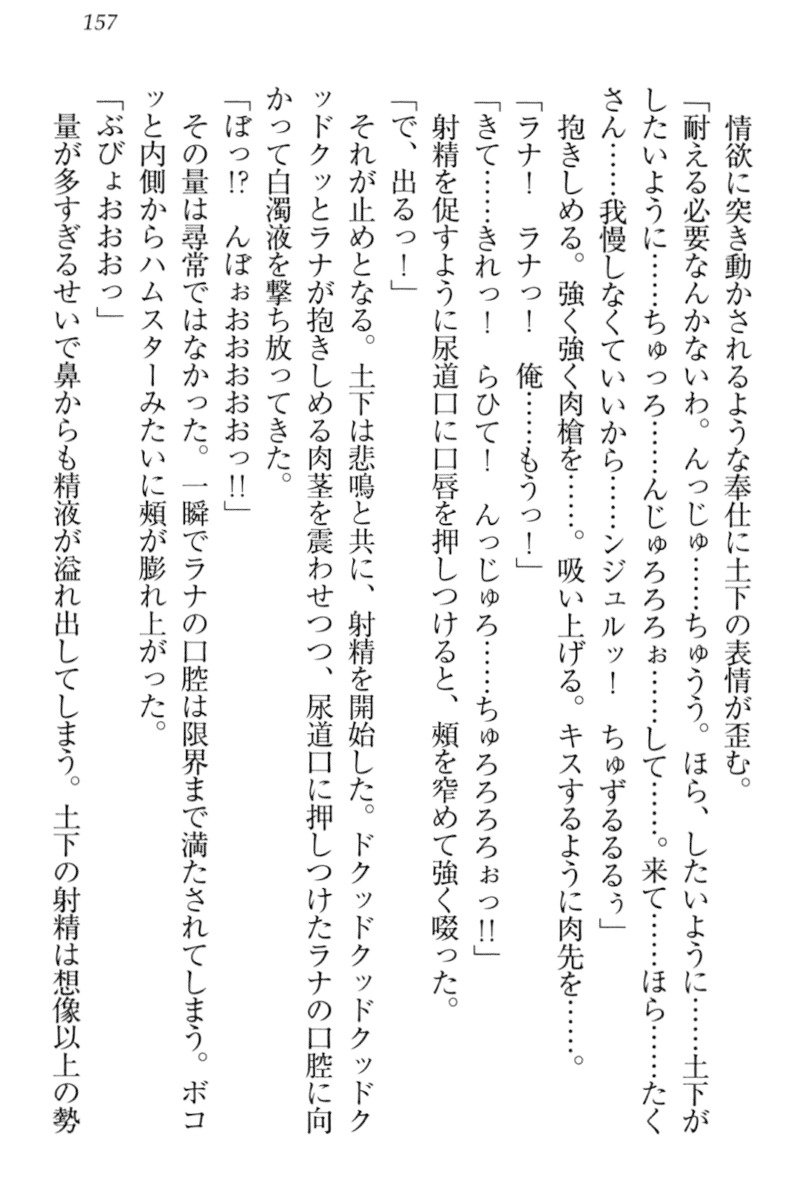 157
情欲に突き動かされるような奉仕に土下の表情が歪む。
「耐える必要なんかないわ。んっじゅ……ちゅうう。ほら、したいように……土下が
したいように……ちゅっろ……んじゅろろろぉ……して……。来て……ほら……たく
さん……我慢しなくていいから……ンジュルッ！　ちゅずるるるぅ」
抱きしめる。強く強く肉槍を……。吸い上げる。キスするように肉先を……。
「ラナ！　ラナっ！　俺……もうっ！」
「きて……きれっ！　らひて！　んっじゅろ……ちゅろろろろぉっ!!」
射精を促すように尿道口に口唇を押しつけると、頰を窄めて強く啜った。
「で、出るっ！」
それが止めとなる。土下は悲鳴と共に、射精を開始した。ドクッドクッドクッドク
ッドクッとラナが抱きしめる肉茎を震わせつつ、尿道口に押しつけたラナの口腔に向
かって白濁液を撃ち放ってきた。
「ぼっ!?　んぼぉおおおおおっ!!」
その量は尋常ではなかった。一瞬でラナの口腔は限界まで満たされてしまう。ボコ
ッと内側からハムスターみたいに頰が膨れ上がった。
「ぶびょおおおっ」
量が多すぎるせいで鼻からも精液が溢れ出してしまう。土下の射精は想像以上の勢